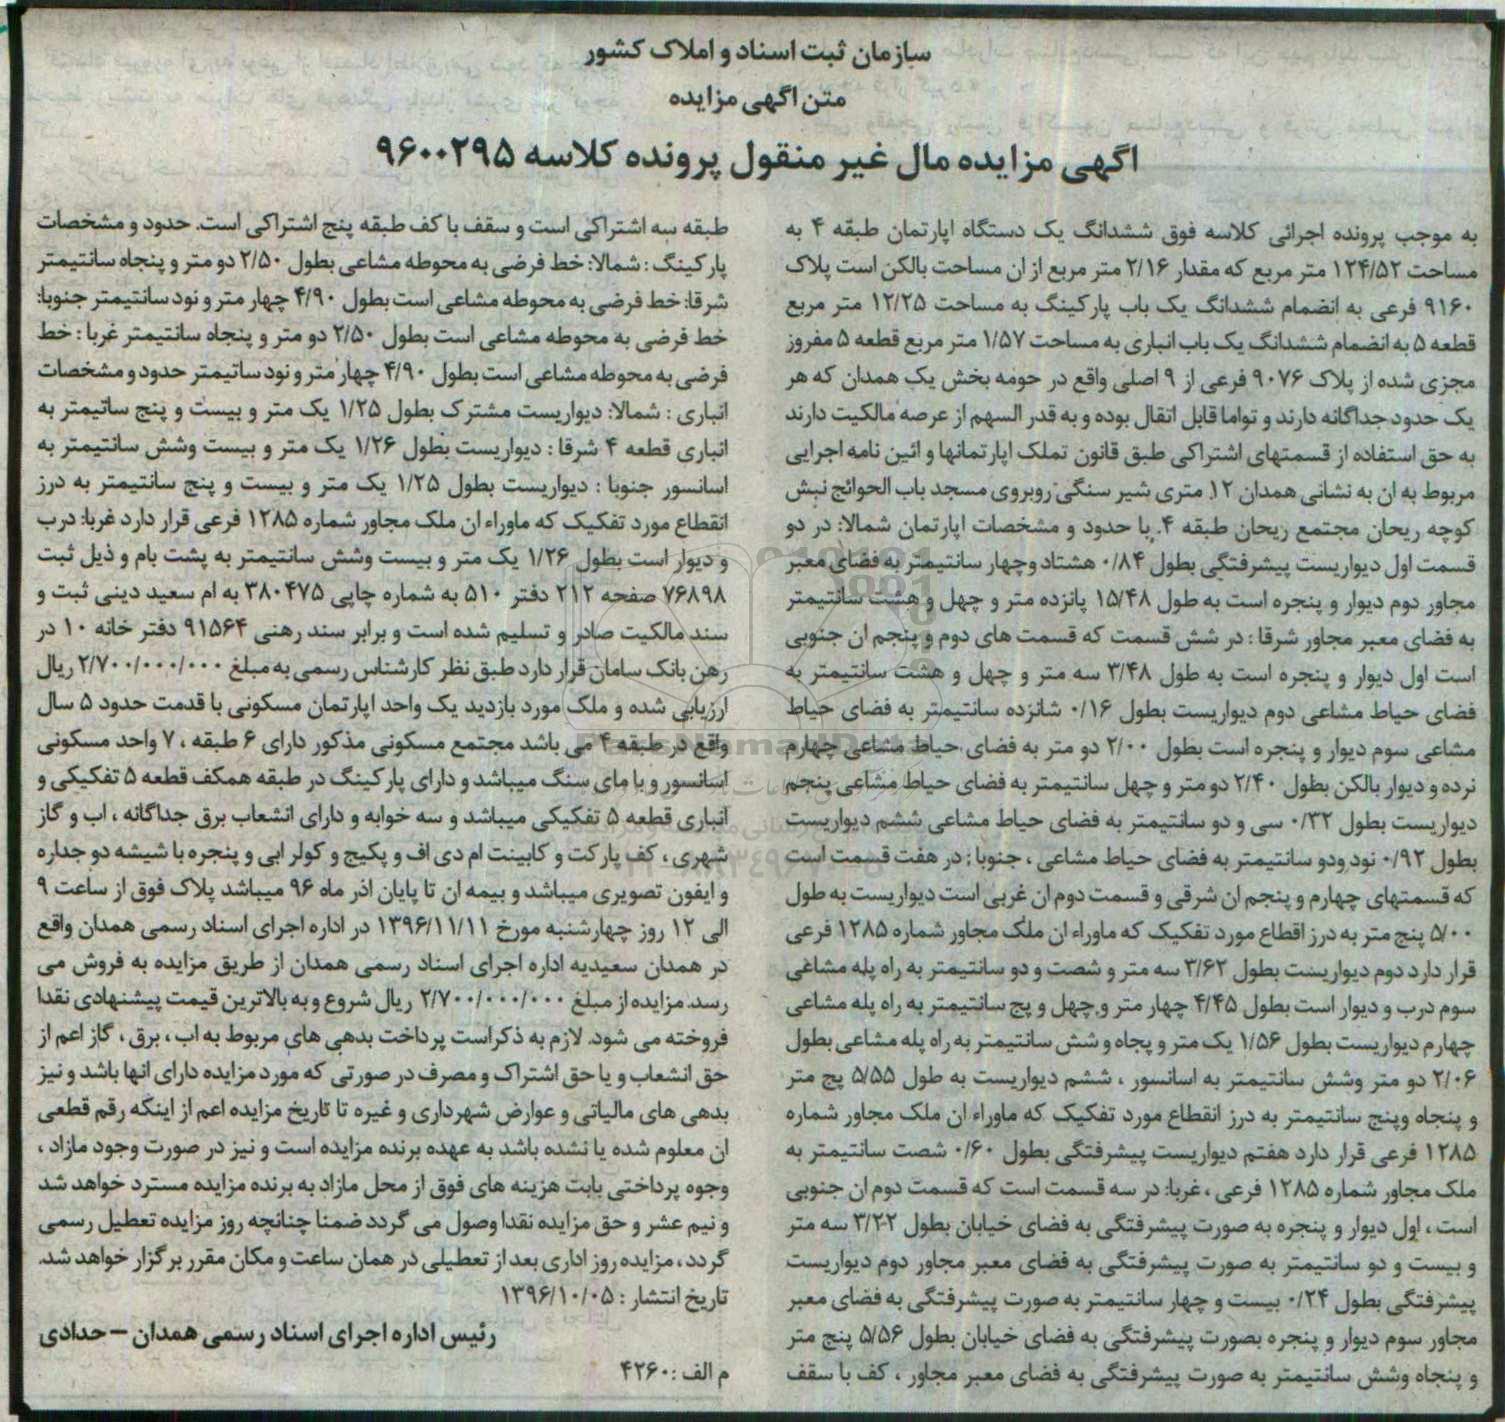 سازمان ثبت اسناد و املاک کشور
متن اگهی مزایده
اگهی مزایده مال غیر منقول پرونده کلاسه ۹۶۰۰۲۹۵
به موجب پرونده اجرائی کلاسه فوق ششدانگ یک دستگاه اپارتمان طبقه ۴ به
مساحت ۱۲۴/۵۲ متر مربع که مقدار ۲/۱۶ متر مربع از ان مساحت بالکن است پلاک
۹۱۶۰ فرعی به انضمام ششدانگ یک باب پارکینگ به مساحت ۱۲/۲۵ متر مربع
قطعه ۵ به انضمام ششدانگ یک باب انباری به مساحت ۱/۵۷ متر مربع قطعه ۵ مفروز
مجزی شده از پلاک ۹۰۷۶ فرعی از ۹ اصلی واقع در حومه بخش یک همدان که هر
یک حدود جداگانه دارند و تواما قابل اتقال بوده و به قدر السهم از عرصه مالکیت دارند
به حق استفاده از قسمتهای اشتراکی طبق قانون تملک اپارتمانها و ائین نامه اجرایی
مربوط به ان به نشانی همدان ۱۲ متری شیر سنگی روبروی مسجد باب الحوائج نبش
کوچه ریحان مجتمع ریحان طبقه ۴. با حدود و مشخصات اپارتمان شمالا: در دو
قسمت اول دیواریست پیشرفتگی بطول ۰/۸۴ هشتاد وچهار سانتیمتر به فضای معبر
مجاور دوم دیوار و پنجره است به طول ۱۵/۴۸ پانزده متر و چهل و هشت سانتیمتر
به فضای معبر مجاور شرقا : در شش قسمت که قسمت های دوم و پنجم ان جنوبی
است اول دیوار و پنجره است به طول ۳/۴۸ سه متر و چهل و هشت سانتیمتر به
فضای حیاط مشاعی دوم دیواریست بطول ۰/۱۶ شانزده سانتیمتر به فضای حیاط
مشاعی سوم دیوار و پنجره است بطول ۲/۰۰ دو متر به فضای حیاط مشاعی چهارم
نرده و دیوار بالکن بطول ۲/۴۰ دو متر و چهل سانتیمتر به فضای حیاط مشاعی پنجم
دیواریست بطول ۰/۳۲ سی و دو سانتیمتر به فضای حیاط مشاعی ششم دیواریست
بطول ۰/۹۲ نود ودو سانتیمتر به فضای حیاط مشاعی ، جنوبا : در هفت قسمت است
که قسمتهای چهارم و پنجم ان شرقی و قسمت دوم ان غربی است دیواریست به طول
۵/۰۰ پنج متر به درز اقطاع مورد تفکیک که ماوراء ان ملک مجاور شماره ۱۲۸۵ فرعی
قرار دارد دوم دیواریست بطول ۳/۶۲ سه متر و شصت و دو سانتیمتر به راه پله مشاعی
سوم درب و دیوار است بطول ۴/۴۵ چهار متر و چهل و پج سانتیمتر به راه پله مشاعی
چهارم دیواریست بطول ۱/۵۶ یک متر و پجاه و شش سانتیمتر به راه پله مشاعی بطول
۲/۰۶ دو متر وشش سانتیمتر به اسانسور ، ششم دیواریست به طول ۵/۵۵ پج متر
و پنجاه وپنج سانتیمتر به درز انقطاع مورد تفکیک که ماوراء ان ملک مجاور شماره
۱۲۸۵ فرعی قرار دارد هفتم دیواریست پیشرفتگی بطول ۰/۶۰ شصت سانتیمتر به
ملک مجاور شماره ۱۲۸۵ فرعی ، غربا: در سه قسمت است که قسمت دوم ان جنوبی
است ، اول دیوار و پنجره به صورت پیشرفتگی به فضای خیابان بطول ۳/۲۲ سه متر
و بیست و دو سانتیمتر به صورت پیشرفتگی به فضای معبر مجاور دوم دیواریست
پیشرفتگی بطول ۰/۲۴ بیست و چهار سانتیمتر به صورت پیشرفتگی به فضای معبر
مجاور سوم دیوار و پنجره بصورت پیشرفتگی به فضای خیابان بطول ۵/۵۶ پنج متر
و پنجاه وشش سانتیمتر به صورت پیشرفتگی به فضای معبر مجاور ، کف با سقف
طبقه سه اشتراکی است و سقف با کف طبقه پنج اشتراکی است. حدود و مشخصات
پارکینگ : شمالا: خط فرضی به محوطه مشاعی بطول ۲/۵۰ دو متر و پنجاه سانتیمتر
شرقا: خط فرضی به محوطه مشاعی است بطول ۴/۹۰ چهار متر و نود سانتیمتر جنوبا:
خط فرضی به محوطه مشاعی است بطول ۲/۵۰ دو متر و پنجاه سانتیمتر غربا : خط
فرضی به محوطه مشاعی است بطول ۴/۹۰ چهار متر و نود ساتیمتر حدود و مشخصات
انباری : شمالا: دیواریست مشترک بطول ۱/۲۵ یک متر و بیست و پنج ساتیمتر به
انباری قطعه ۴ شرقا : دیواریست بطول ۱/۲۶ یک متر و بیست وشش سانتیمتر به
اسانسور جنوبا : دیواریست بطول ۱/۲۵ یک متر و بیست و پنج سانتیمتر به درز
انقطاع مورد تفکیک که ماوراء ان ملک مجاور شماره ۱۲۸۵ فرعی قرار دارد غربا: درب
و دیوار است بطول ۱/۲۶ یک متر و بیست وشش سانتیمتر به پشت بام و ذیل ثبت
۷۶۸۹۸ صفحه ۲۱۲ دفتر ۵۱۰ به شماره چاپی ۳۸۰۴۷۵ به ام سعید دینی ثبت و
سند مالکیت صادر و تسلیم شده است و برابر سند رهنی ۹۱۵۶۴ دفتر خانه ۱۰ در
رهن بانک سامان قرار دارد طبق نظر کارشناس رسمی به مبلغ ۲/۷۰۰/۰۰۰/۰۰۰ ریال
ارزیابی شده و ملک مورد بازدید یک واحد اپارتمان مسکونی با قدمت حدود ۵ سال
واقع در طبقه ۴ می باشد مجتمع مسکونی مذکور دارای ۶ طبقه ، ۷ واحد مسکونی
اسانسور و با مای سنگ میباشد و دارای پارکینگ در طبقه همکف قطعه ۵ تفکیکی و
انباری قطعه ۵ تفکیکی میباشد و سه خوابه و دارای انشعاب برق جداگانه ، اب و گاز
شهری ، کف پارکت و کابینت ام دی اف و پکیج و کولر ابی و پنجره با شیشه دو جداره
و ایفون تصویری میباشد و بیمه ان تا پایان اذر ماه ۹۶ میباشد پلاک فوق از ساعت ۹
الی ۱۲ روز چهارشنبه مورخ ۱۳۹۶/۱۱/۱۱ در اداره اجرای اسناد رسمی همدان واقع
در همدان سعیدیه اداره اجرای اسناد رسمی همدان از طریق مزایده به فروش می
رسد. مزایده از مبلغ ۲/۷۰۰/۰۰۰/۰۰۰ ریال شروع و به بالاترین قیمت پیشنهادی نقدا
فروخته می شود. لازم به ذکراست پرداخت بدهی های مربوط به اب ، برق ، گاز اعم از
حق انشعاب و یا حق اشتراک و مصرف در صورتی که مورد مزایده دارای انها باشد و نیز
بدهی های مالیاتی و عوارض شهرداری و غیره تا تاریخ مزایده اعم از اینکه رقم قطعی
ان معلوم شده یا نشده باشد به عهده برنده مزایده است و نیز در صورت وجود مازاد ،
وجوه پرداختی بابت هزینه های فوق از محل مازاد به برنده مزایده مسترد خواهد شد
و نیم عشر و حق مزایده نقدا وصول می گردد ضمنا چنانچه روز مزایده تعطیل رسمی
گردد ، مزایده روز اداری بعد از تعطیلی در همان ساعت و مکان مقرر برگزار خواهد شد.
تاریخ انتشار : ۱۳۹۶/۱۰/۰۵
رئیس اداره اجرای اسناد رسمی همدان – حدادی
م الف : ۴۲۶۰